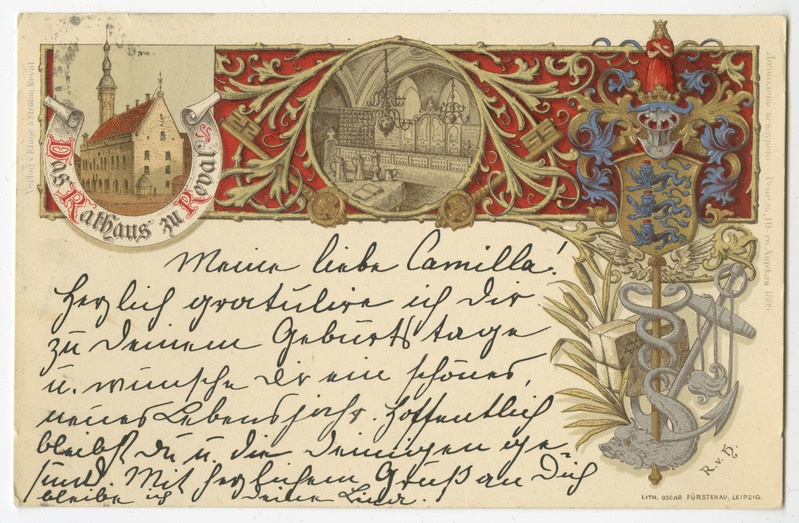 Das Rathaus zu Reval
Verlag v. Kluge & Ströhm, Reval
Meine liebe Camilla!
Herzlich gratulire ich Dir
zu Deinem Geburtstage
u. wünsche Dir ein schönes,
neues Lebensjahr. Hoffentlich
bleibst Du u. die Deinigen ge-
sund. Mit herzlichem Gruß an Dich
bleibe ich Deine
R. v. H.
LITH. OSCAR FÜRSTENAU, LEIPZIG.